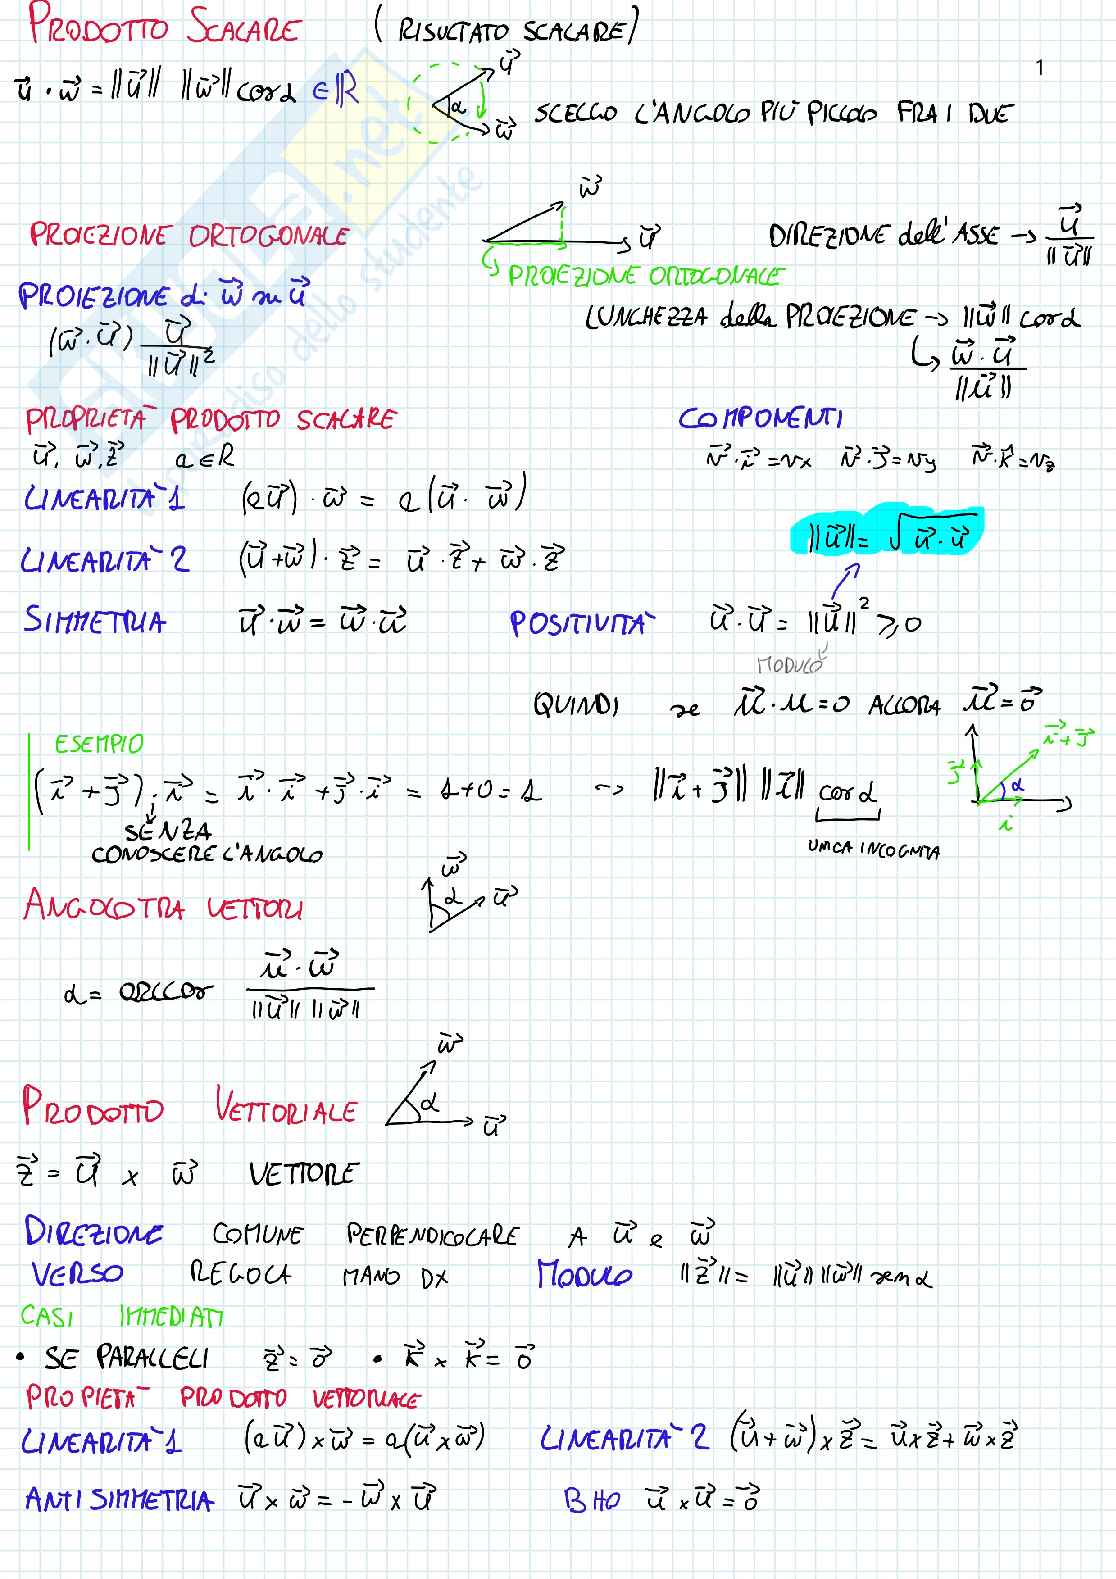 PRODOTTO SCALARE (RISULTATO SCALARE)
1
u⃗ · w⃗ = ||u⃗|| ||w⃗|| cos α ∈ ℝ
u⃗
α
w⃗
SCELGO L'ANGOLO PIÙ PICCOLO FRA I DUE
PROIEZIONE ORTOGONALE
w⃗
u⃗
PROIEZIONE ORTOGONALE
DIREZIONE dell'ASSE → u⃗ / ||u⃗||
PROIEZIONE di w⃗ su u⃗
(w⃗ · u⃗) u⃗ / ||u⃗||²
LUNGHEZZA della PROIEZIONE → ||w⃗|| cos α
↳ w⃗ · u⃗ / ||u⃗||
PROPRIETÀ PRODOTTO SCALARE
u⃗, w⃗, z⃗ a ∈ R
COMPONENTI
v⃗ · i⃗ = vx v⃗ · j⃗ = vy v⃗ · k⃗ = vz
LINEARITÀ 1 (a u⃗) · w⃗ = a (u⃗ · w⃗)
||u⃗|| = √ u⃗ · u⃗
LINEARITÀ 2 (u⃗ + w⃗) · z⃗ = u⃗ · z⃗ + w⃗ · z⃗
SIMMETRIA u⃗ · w⃗ = w⃗ · u⃗
POSITIVITÀ u⃗ · u⃗ = ||u⃗||² ⩾ 0
MODULO
QUINDI se u⃗ · u = 0 ALLORA u⃗ = 0⃗
ESEMPIO
(i⃗ + j⃗) · i⃗ = i⃗ · i⃗ + j⃗ · i⃗ = 1 + 0 = 1 → ||i⃗ + j⃗|| ||i⃗|| cos α
SENZA
CONOSCERE L'ANGOLO
UNICA INCOGNITA
i⃗ + j⃗
j⃗
α
i
ANGOLO TRA VETTORI
w⃗
α
u⃗
α = arccos u⃗ · w⃗ / ||u⃗|| ||w⃗||
PRODOTTO VETTORIALE
w⃗
α
u⃗
z⃗ = u⃗ × w⃗ VETTORE
DIREZIONE COMUNE PERPENDICOLARE A u⃗ e w⃗
VERSO REGOLA MANO DX
MODULO ||z⃗|| = ||u⃗|| ||w⃗|| sen α
CASI IMMEDIATI
• SE PARALLELI z⃗ = 0⃗ • k⃗ × k⃗ = 0⃗
PROPIETÀ PRODOTTO VETTORIALE
LINEARITÀ 1 (a u⃗) × w⃗ = a (u⃗ × w⃗)
LINEARITÀ 2 (u⃗ + w⃗) × z⃗ = u⃗ × z⃗ + w⃗ × z⃗
ANTISIMMETRIA u⃗ × w⃗ = - w⃗ × u⃗
BHO u⃗ × u⃗ = 0⃗